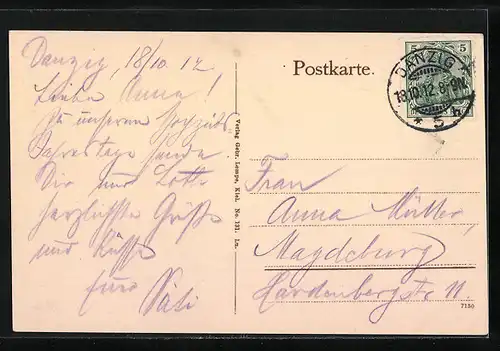 Danzig, 18/10. 12.
Liebe Anna!
Zu unserem Hochzeits
Jahrestage sende
Dir und Lotte
herzlichste Grüße
und Küsse
Eure
Postkarte.
5 5
DANZIG
18.10.12. 8-9N.
* 5 h
Verlag Gebr. Lempe, Kiel. No. 131. La.
Frau
Anna Müller,
Magdeburg
Hardenbergstr. 11.
7150